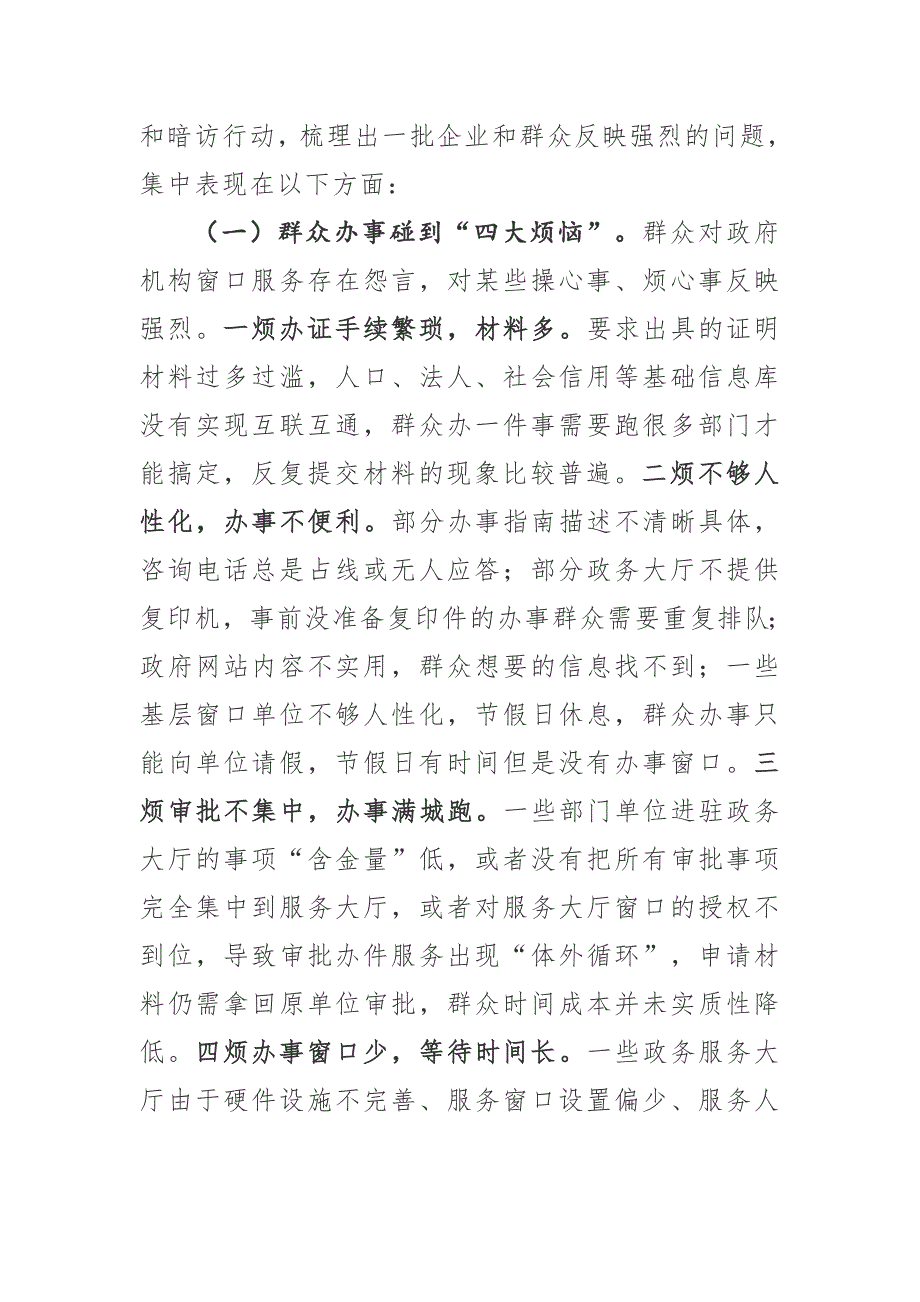 和暗访行动，梳理出一批企业和群众反映强烈的问题，
集中表现在以下方面：
（一）群众办事碰到“四大烦恼”。群众对政府
机构窗口服务存在怨言，对某些操心事、烦心事反映
强烈。一烦办证手续繁琐，材料多。要求出具的证明
材料过多过滥，人口、法人、社会信用等基础信息库
没有实现互联互通，群众办一件事需要跑很多部门才
能搞定，反复提交材料的现象比较普遍。二烦不够人
性化，办事不便利。部分办事指南描述不清晰具体，
咨询电话总是占线或无人应答；部分政务大厅不提供
复印机，事前没准备复印件的办事群众需要重复排队；
政府网站内容不实用，群众想要的信息找不到；一些
基层窗口单位不够人性化，节假日休息，群众办事只
能向单位请假，节假日有时间但是没有办事窗口。三
烦审批不集中，办事满城跑。一些部门单位进驻政务
大厅的事项“含金量”低，或者没有把所有审批事项
完全集中到服务大厅，或者对服务大厅窗口的授权不
到位，导致审批办件服务出现“体外循环”，申请材
料仍需拿回原单位审批，群众时间成本并未实质性降
低。四烦办事窗口少，等待时间长。一些政务服务大
厅由于硬件设施不完善、服务窗口设置偏少、服务人